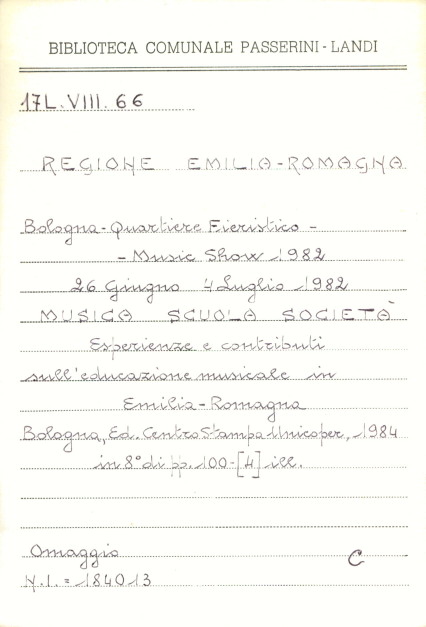 BIBLIOTECA COMUNALE PASSERINI-LANDI
17L.VIII.66
REGIONE EMILIA-ROMAGNA
Bologna-Quartiere Fieristico -
- Music Show 1982
26 Giugno 4 Luglio 1982
MUSICA SCUOLA SOCIETÀ
Esperienze e contributi
sull'educazione musicale in
Emilia-Romagna
Bologna, Ed. Centro Stampa Unicoper, 1984
in 8° di pp. 100-[4] ill.
Omaggio C
N.I. = 184013